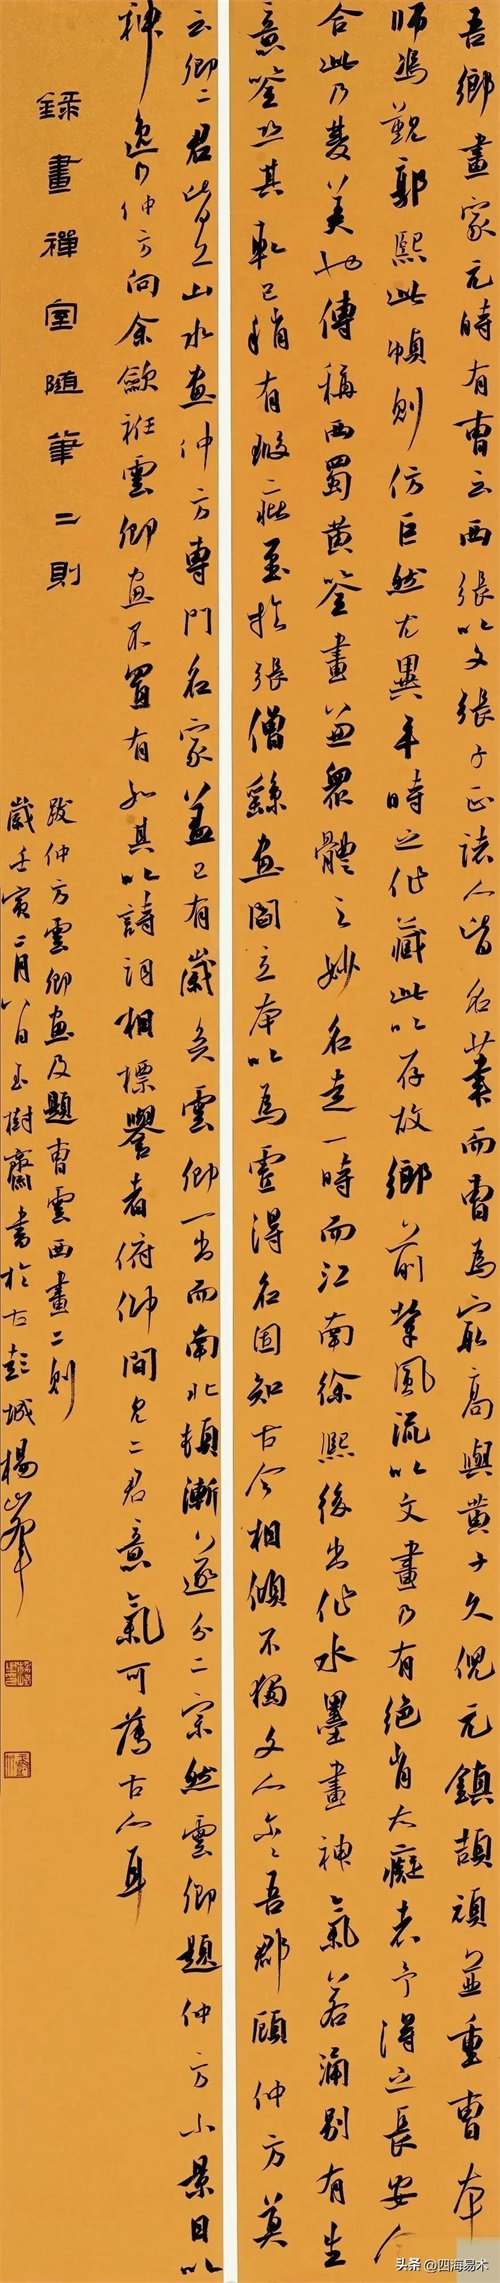 吾鄉畫家元時有曹云西張以文張子正諸人皆名業而曹為最高與黃子久倪元鎮頡頏並重曹本
師馮覲郭熙此幀則仿巨然尤異平時之作藏此以存故鄉前輩風流以文畫乃有絕肖大癡者予得之長安今
合此乃雙美也傳稱西蜀黃筌畫兼眾體之妙名走一時而江南徐熙後出作水墨畫神氣若涌別有生
意筌恐其軋己稍有瑕疵至於張僧繇畫閻立本以為虛得名固知古今相傾不獨文人爾爾吾郡顧仲方莫
云卿二君皆工山水畫仲方專門名家蓋已有歲矣雲卿一出而南北頓漸遂分二宗然雲卿題仲方小景目以
神逸乃仲方向余歛衽雲卿畫不置有如其以詩詞相標譽者俯仰間見二君意氣可薄古人耳
錄畫禪室隨筆二則
跋仲方雲卿畫及題曹雲西畫二則
歲壬寅二月八日玉樹齋書於古彭城楊峰
头条 @四海易木